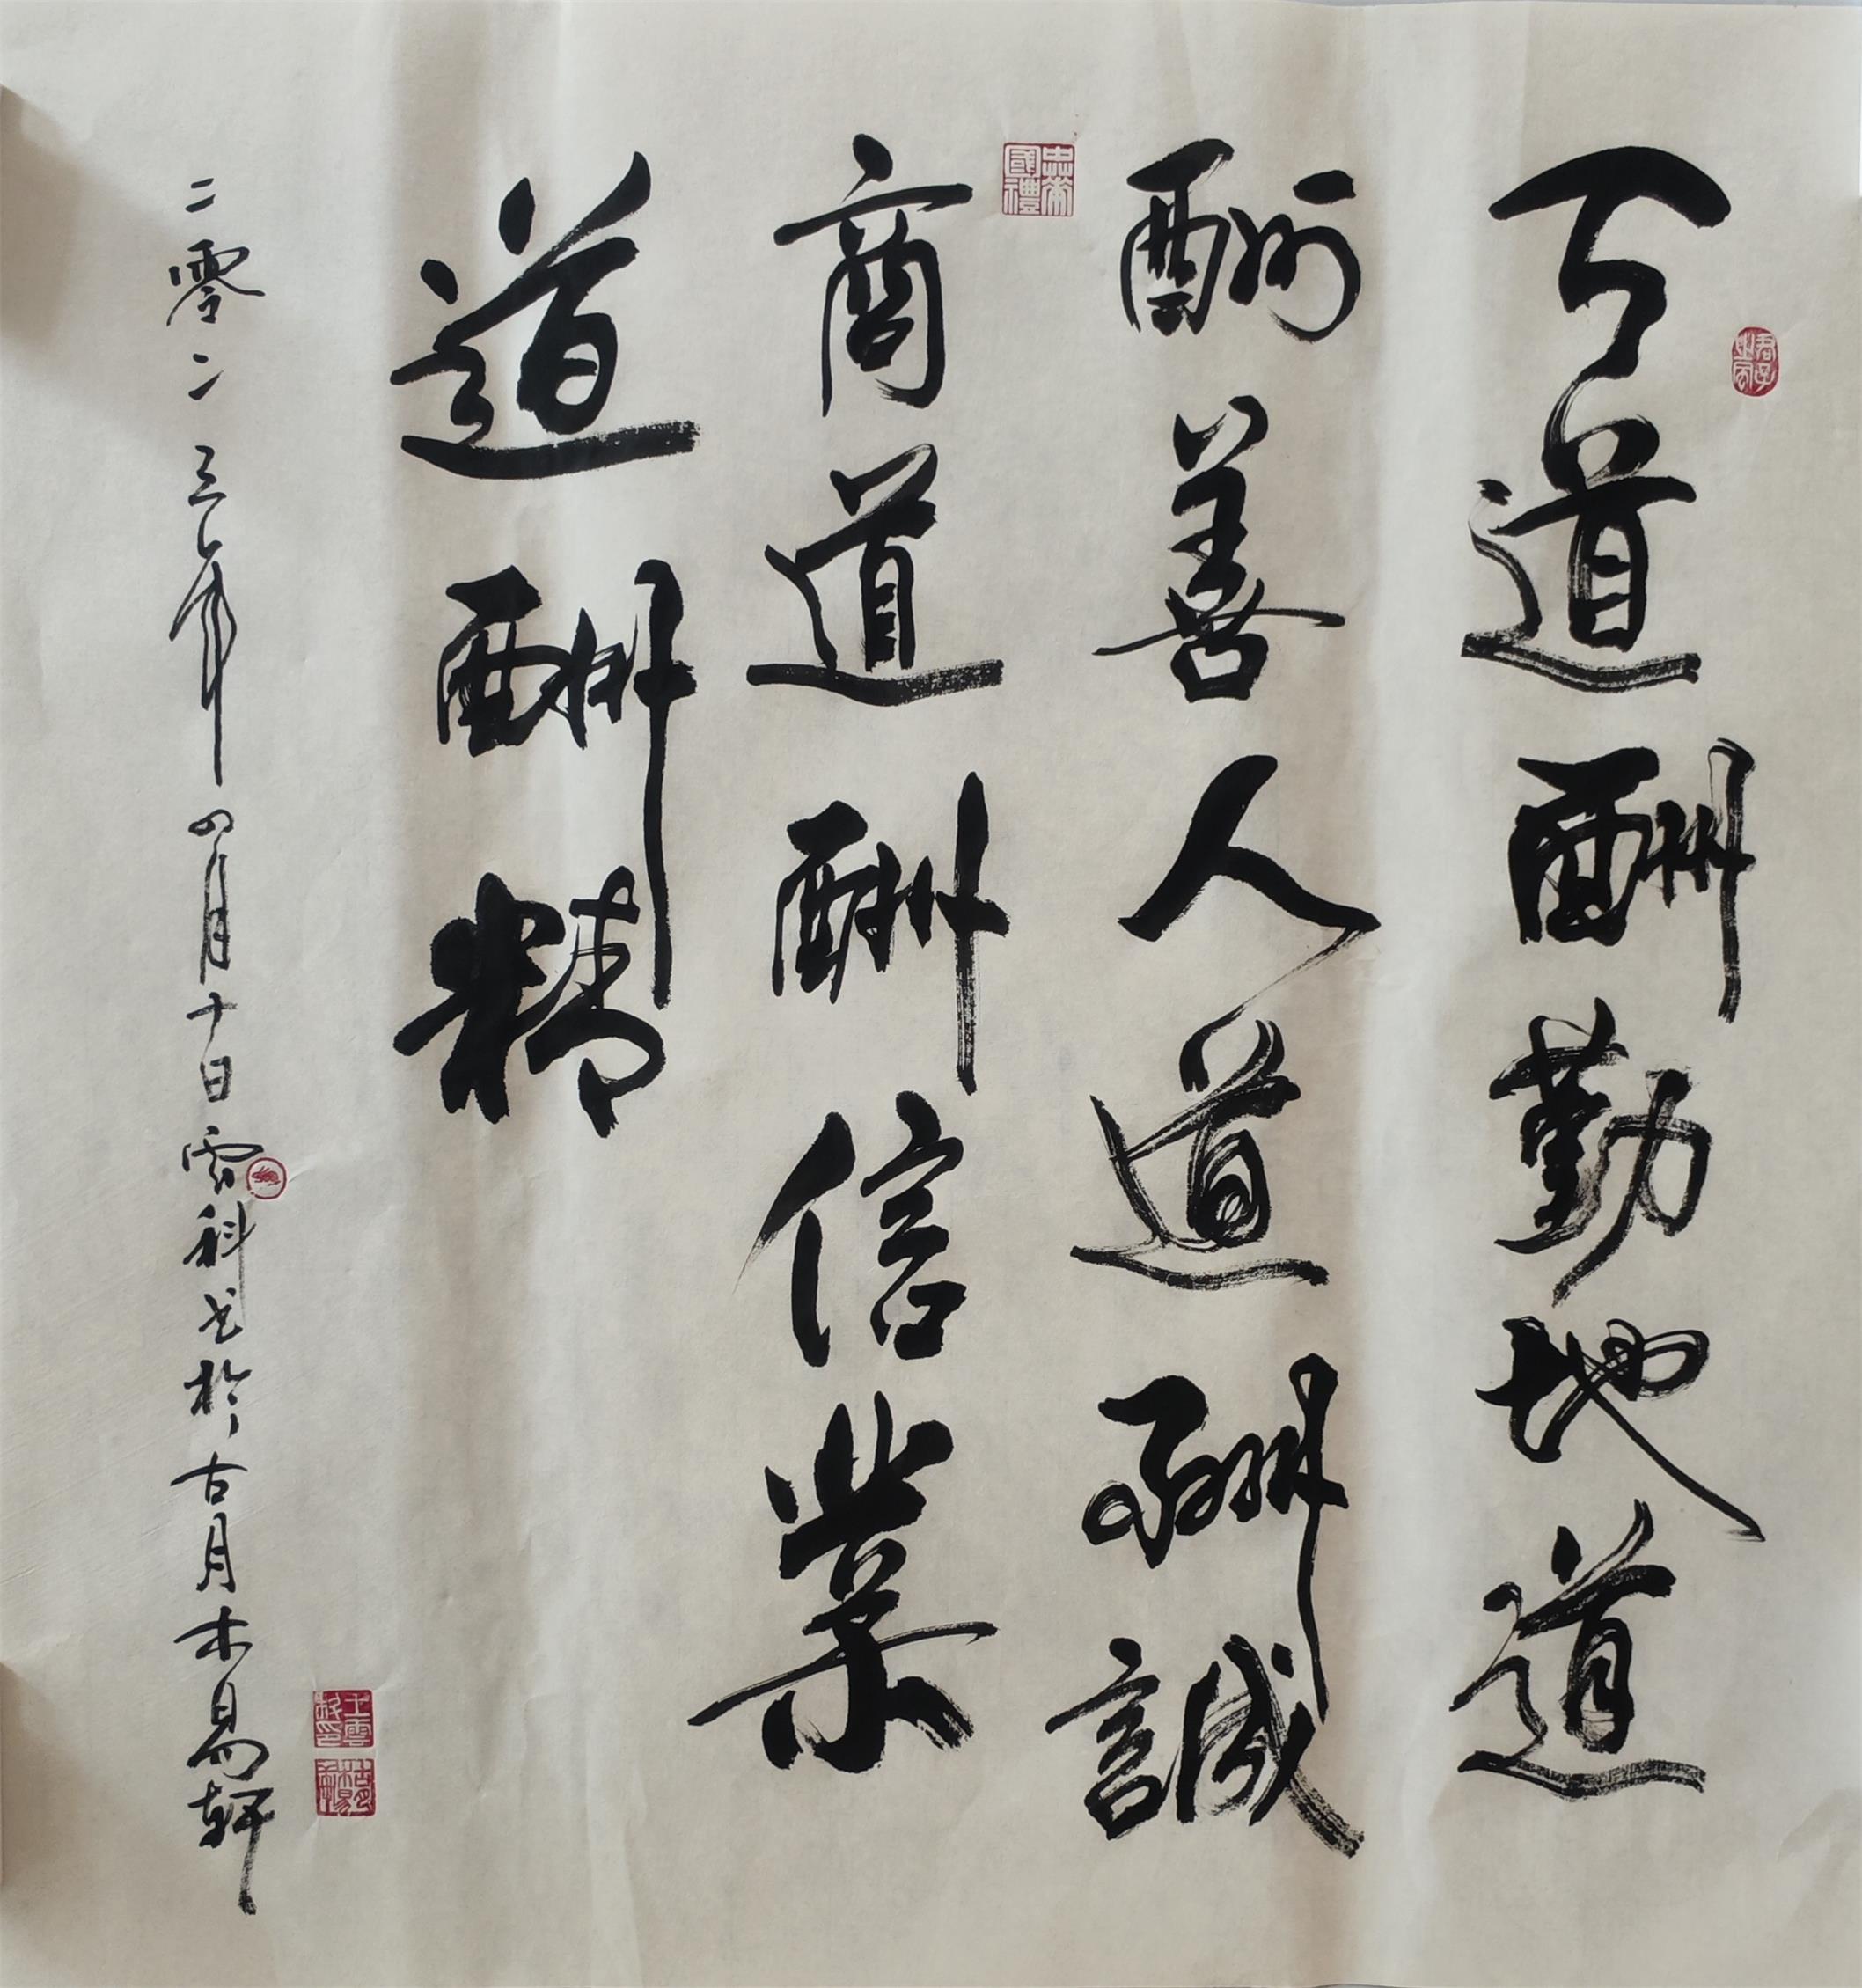 天道酬勤地道
酬善人道酬誠
商道酬信業
道酬精
二零二三年四月十日雲科书於古月木易軒